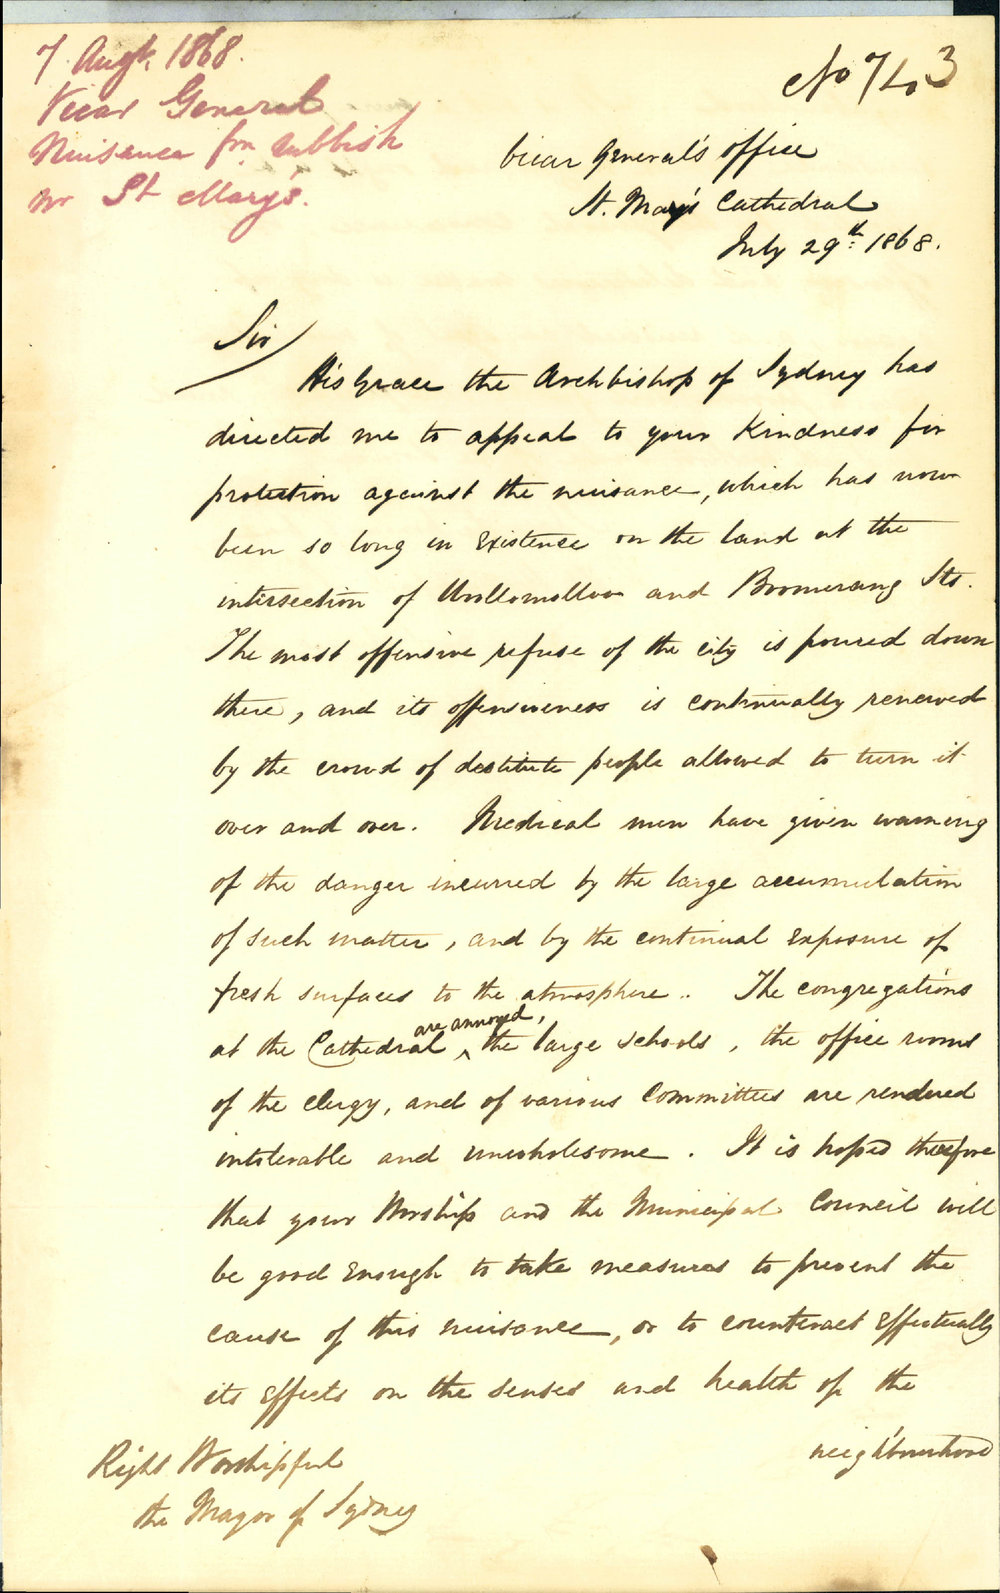 7 Augt. 1868.
Vicar General
Nuisance fm rubbish
nr St Mary's.
No 743
Vicar General's Office
St. Mary's Cathedral
July 29th. 1868.
Sir
His Grace the Archbishop of Sydney has
directed me to appeal to your Kindness for
protection against the nuisance, which has now
been so long in Existence on the land at the
intersection of Woolloomolloo and Boomerang Sts.
The most offensive refuse of the city is poured down
there, and its offensiveness is continually renewed
by the crowd of destitute people allowed to turn it
over and over. Medical men have given warning
of the danger incurred by the large accumulation
of such matter, and by the continual Exposure of
fresh surfaces to the atmosphere.. The congregations
are annoyed,
at the Cathedral ^ the large schools, the office rooms
of the clergy, and of various Committees are rendered
intolerable and unwholesome. It is hoped therefore
that your Worship and the Municipal Council will
be good Enough to take measures to prevent the
cause of this nuisance, or to counteract Effectually
its Effects on the senses and health of the
neighbourhood
Right Worshipful
the Mayor of Sydney